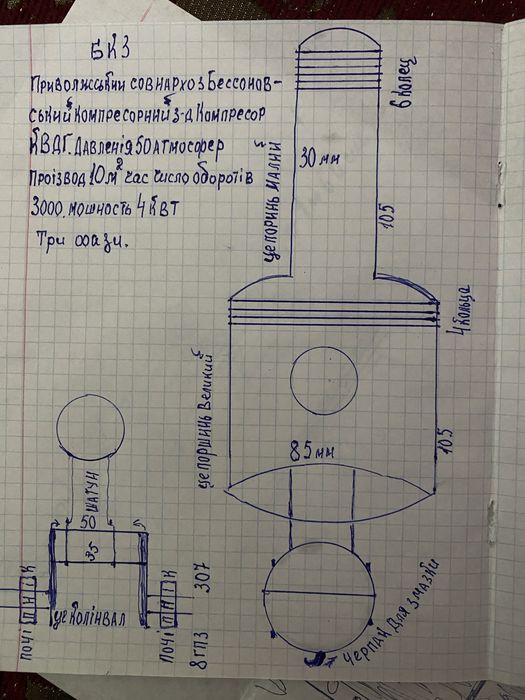 БКЗ
Приволжський совнархоз Бессонов-
ський Компресорний з-д Компресор
КВДГ. Давленія 50 Атмосфер
Проізвод 10 м² час число оборотів
3000. мошность 4 КВТ
Три фази.
6 колец
30 мм
це поринь малий
105
4 кольца
це поршинь великий
85 мм
105
шатун
50
35
це Колінвал
почі
п н і к
почі
п н і к
8 гпз 307
черпак для змазки